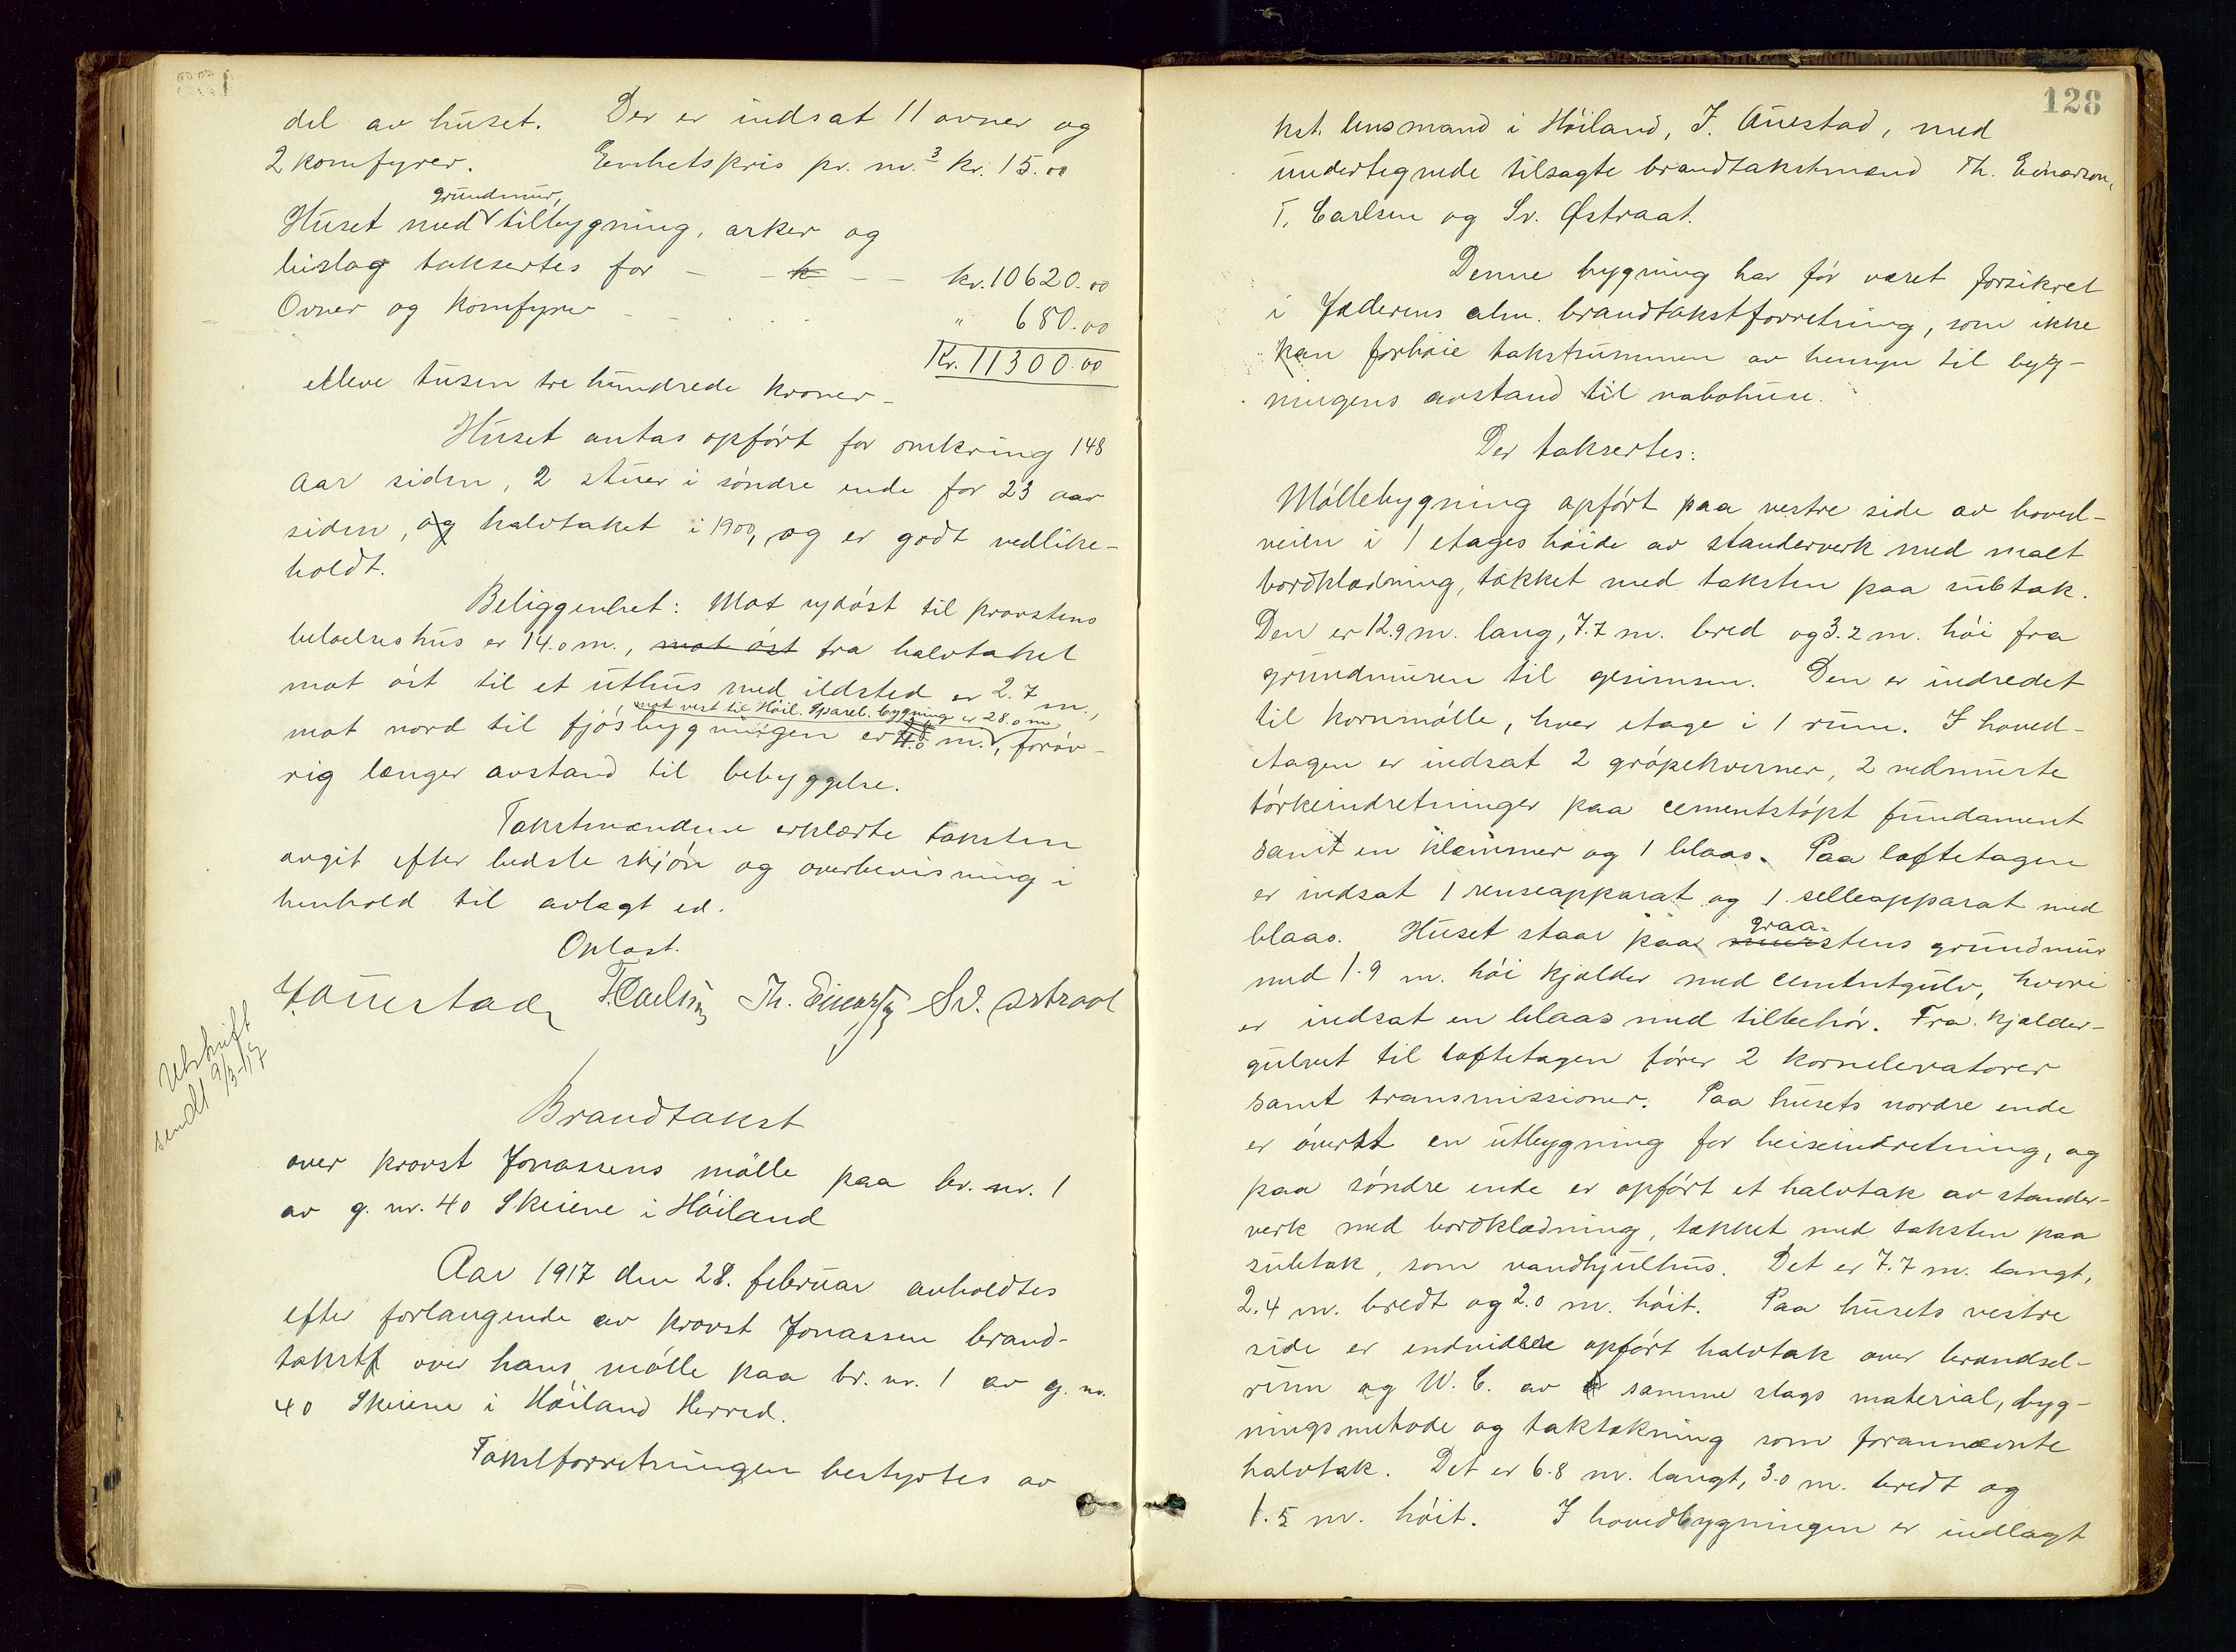 del av huset. Der er indsat 11 ovner og
2 komfyrer. Eenhetspris pr. m.³ kr. 15.00
grundmur,
Huset med tilbygning, arker og
bislag taksertes for – – k – – kr. 10620.00
Ovner og komfyrer – – . . . " 680.00
Kr. 11300.00
elleve tusen tre hundrede kroner –
Huset antas opført for omkring 148
aar siden, 2 stuer i søndre ende for 23 aar
siden, og halvtaket i 1900, og er godt vedlike-
holdt.
Beliggenhet: Mot sydøst til provstens
beboelseshus er 14.0 m., mot øst fra halvtaket
mot øst til et uthus med ildsted er 2.7 m.,
mot vest til Høil. Spareb. bygning er 28.0 m
mot nord til fjøsbygningen er 4.8 m., forøv-
rig længer avstand til bebyggelse.
Takstmændene erklærte taksten
avgit efter bedste skjøn og overbevisning i
henhold til avlagt ed.
Oplæst.
J. Auestad T. Carlsen Th. Einarsen Sv. Østraat
Utskrift
sendt 9/3-17
Brandtakst
over provst Jonassens mølle paa br. nr. 1
av g. nr. 40 Skeiene i Høiland
Aar 1917 den 28. februar avholdtes
efter forlangende av provst Jonassen brand-
takst over hans mølle paa br. nr. 1 av g. nr.
40 Skeiene i Høiland Herred.
Takstforretningen bestyrtes av
128
kst. lensmand i Høiland, J. Auestad, med
undertegnede tilsagte brandtakstmænd Th. Einarsen,
T. Carlsen og Sv. Østraat.
Denne bygning har før været forsikret
i Jæderens alm. brandtakstforretning, som ikke
kan forhøie takstsummen av hensyn til byg-
ningens avstand til nabohuse.
Der taksertes:
Møllebygning opført paa vestre side av hoved-
veien i 1 etages høide av standerverk med malt
bordklædning, tækket med taksten paa subtak.
Den er 12.9 m. lang, 7.7 m. bred og 3.2 m. høi fra
grundmuren til gesimsen. Den er indredet
til kornmølle, hver etage i 1 rum. I hoved-
etagen er indsat 2 grøpekverner, 2 nedmurte
tørkeindretninger paa cementstøpt fundament
samt en klemmer og 1 blaas. Paa loftetagen
er indsat 1 renseapparat og 1 selleapparat med
graa-
blaas. Huset staar paa murstens grundmur
med 1.9 m. høi kjælder med cementgulv, hvori
er indsat en blaas med tilbehør. Fra kjælder-
gulvet til loftetagen fører 2 kornelevatorer
samt transmissioner. Paa husets nordre ende
er øverst en utbygning for heiseindretning, og
paa søndre ende er opført et halvtak av stander-
verk med bordklædning, tækket med taksten paa
subtak, som vandhjulhus. Det er 7.7 m. langt,
2.4 m. bredt og 2.0 m. høit. Paa husets vestre
side er endvidere opført halvtak over brændsel-
rum og W. C. av samme slags material, byg-
ningsmetode og taktækning som forannævnte
halvtak. Det er 6.8 m. langt, 3.0 m. bredt og
1.5 m. høit. I hovedbygningen er indlagt